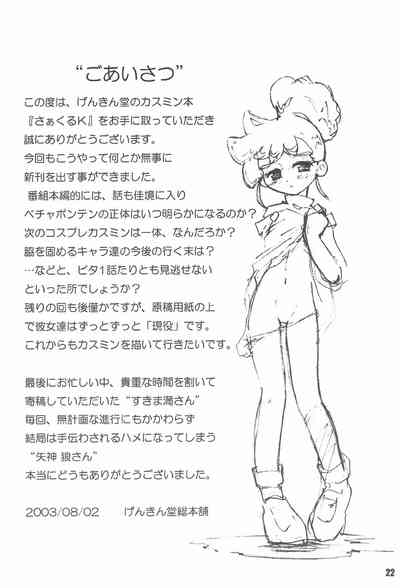 “ごあいさつ”
この度は、げんきん堂のカスミン本
『さぁくるK』をお手に取っていただき
誠にありがとうございます。
今回もこうやって何とか無事に
新刊を出す事ができました。
番組本編的には、話も佳境に入り
ベチャポンテンの正体はいつ明らかになるのか？
次のコスプレカスミンは一体、なんだろか？
脇を固めるキャラ達の今後の行く末は？
…などと、ビタ1話たりとも見逃せない
といった所でしょうか？
残りの回も後僅かですが、原稿用紙の上
で彼女達はずっとずっと「現役」です。
これからもカスミンを描いて行きたいです。
最後にお忙しい中、貴重な時間を割いて
寄稿していただいた“すきま満さん”
毎回、無計画な進行にもかかわらず
結局は手伝わされるハメになってしまう
“矢神 狼さん”
本当にどうもありがとうございました。
2003/08/02 げんきん堂総本舗
22